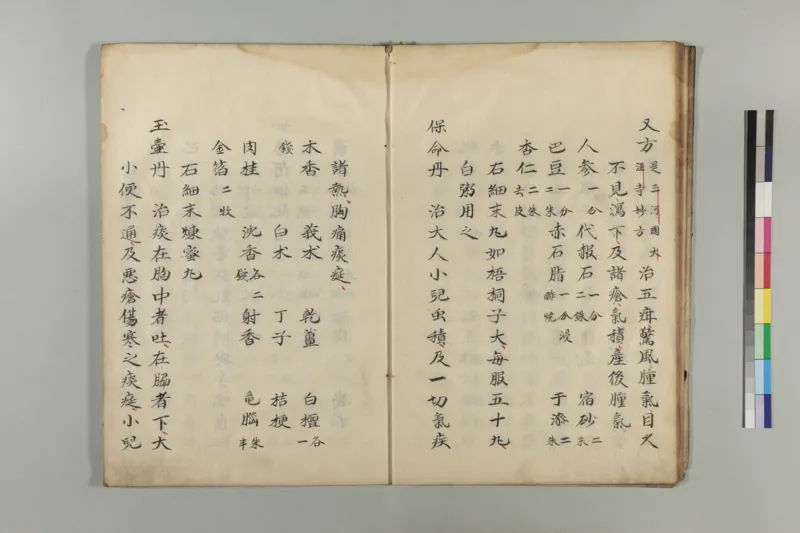 又方 是三河國大 治五疳驚風腫氣目久
法寺妙方
不見瀉下及諸瘡氣積産後腫氣
人参 一分 代赦石 一分二銖 宿砂 二朱
巴豆 一分二朱 赤石脂 一分浸醉炒 于添 二朱
杏仁 二朱去皮
右細末丸如梧桐子大毎服五十丸
白粥用之
保命丹 治大人小兒虫積及一切氣疾
諸熱胸痛痰痃
木香 莪朮 乾薑 白檀 各一
錢 白朮 丁子 桔梗
肉桂 沈香 各二錢 射香 竜腦 朱半
金箔 二枚
右細末煉蜜丸
玉壷丹 治痰在胸中者吐在脇者下大
小便不通及悪瘡傷寒之痰痃小兒